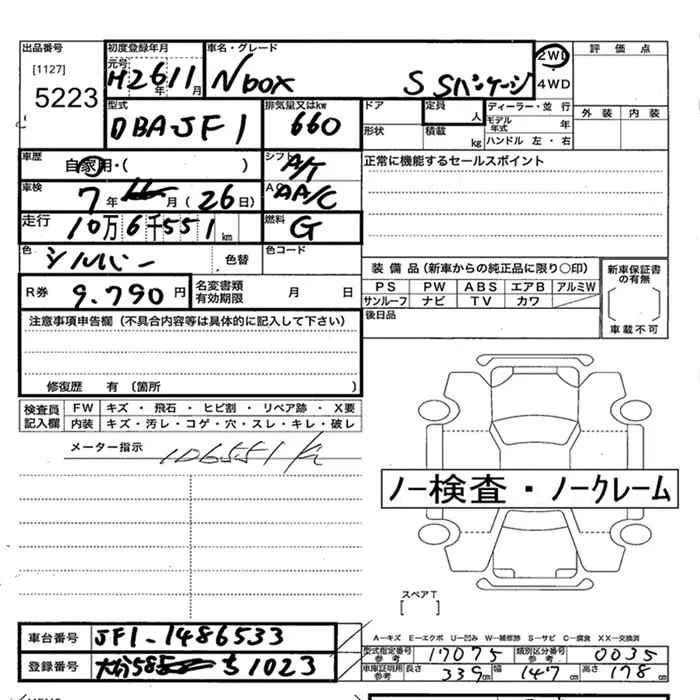 出品番号 初度登録年月 車名・グレード 2WD ・ 4WD 評価点
[1127] 元号 H26年11月 Nbox SSパッケージ
5223
型式 排気量又はkw ドア 定員 人 ディーラー・並行 外装 内装
DBAJF1 660 形状 積載 kg モデル年式 年
ハンドル 左・右
車歴 自家用・( ) シフト A/T 正常に機能するセールスポイント
車検 7年 月(26日) AC AA/C
走行 10万6千551km 燃料 G
色 シルバー 色替 色コード
装備品(新車からの純正品に限り○印) 新車保証書の有無
R券 9.790円 名変書類有効期限 月 日 PS PW ABS エアB アルミW
サンルーフ ナビ TV カワ
後日品 車載不可
注意事項申告欄(不具合内容等は具体的に記入して下さい)
修復歴 有(箇所 )
検査員記入欄 FW キズ・飛石・ヒビ割・リペア跡・X要
内装 キズ・汚レ・コゲ・穴・スレ・キレ・破レ
メーター指示 106551
ノー検査・ノークレーム
スペアT
[ ]
車台番号 JF1-1486533 A−キズ E−エクボ U−凹み W−補修跡 S−サビ C−腐食 XX−交換済
型式指定番号参考 17075 類別区分番号参考 0035
登録番号 大分585 ち1023 車庫証明用参考 長さ 339cm 幅 147cm 高さ 178cm